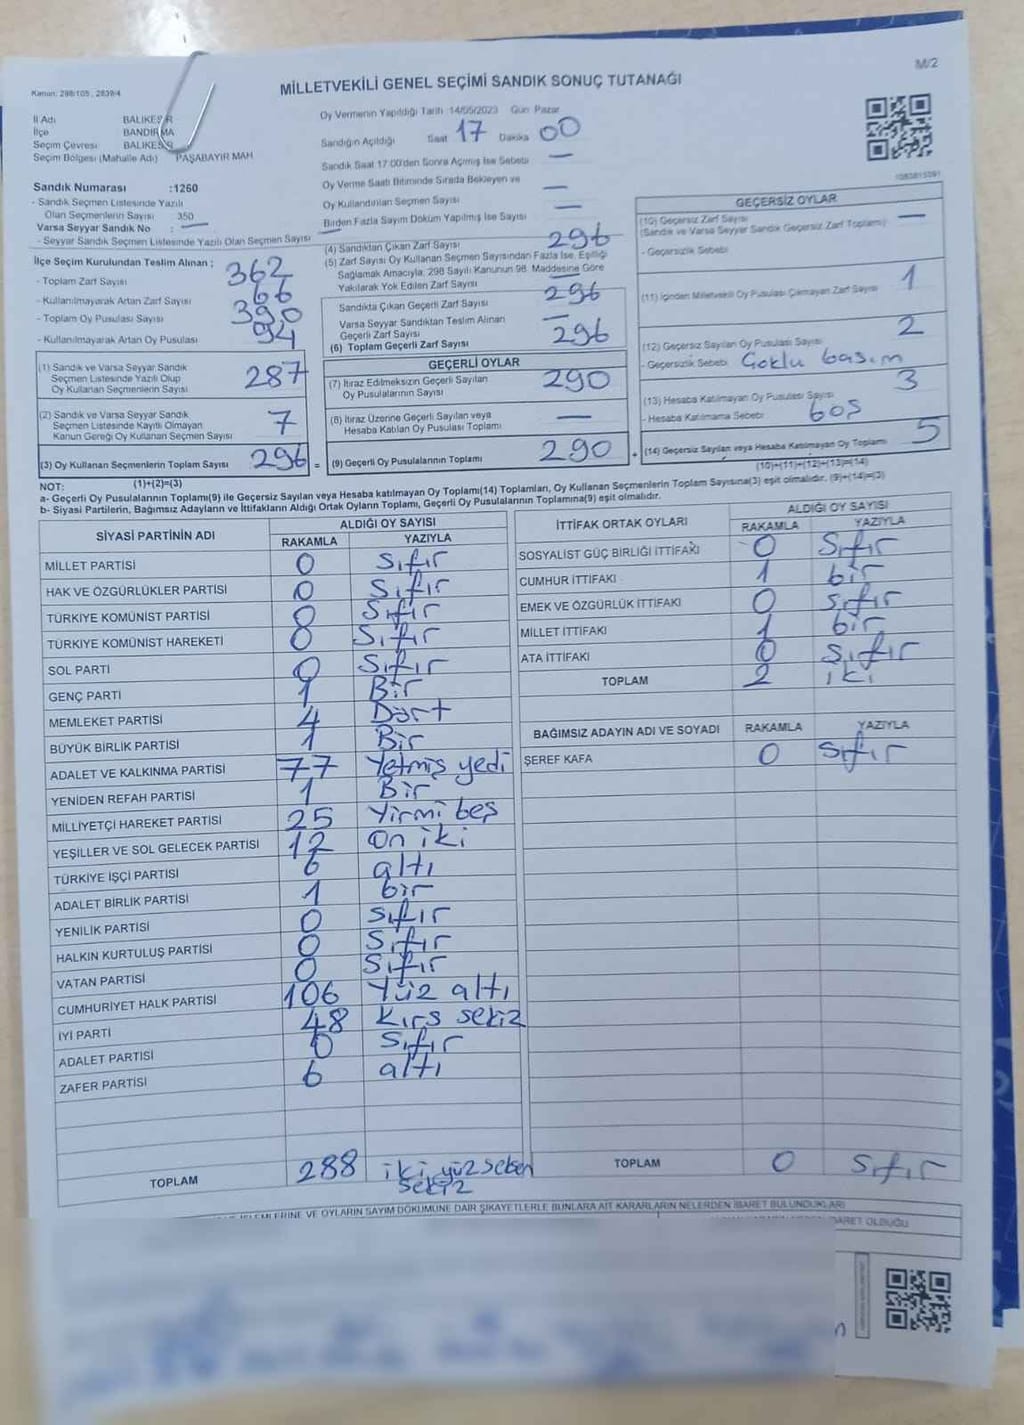 M/2
MİLLETVEKİLİ GENEL SEÇİMİ SANDIK SONUÇ TUTANAĞI
Kanun: 298/105, 2839/4
İl Adı BALIKESİR
İlçe BANDIRMA
Seçim Çevresi BALIKESİR
Seçim Bölgesi (Mahalle Adı) PAŞABAYIR MAH
Sandık Numarası :1260
- Sandık Seçmen Listesinde Yazılı
Olan Seçmenlerin Sayısı 350
Varsa Seyyar Sandık No : —
- Seyyar Sandık Seçmen Listesinde Yazılı Olan Seçmen Sayısı
İlçe Seçim Kurulundan Teslim Alınan :
- Toplam Zarf Sayısı 362
- Kullanılmayarak Artan Zarf Sayısı 66
- Toplam Oy Pusulası Sayısı 390
- Kullanılmayarak Artan Oy Pusulası 94
(1) Sandık ve Varsa Seyyar Sandık
Seçmen Listesinde Yazılı Olup
Oy Kullanan Seçmenlerin Sayısı 287
(2) Sandık ve Varsa Seyyar Sandık
Seçmen Listesinde Kayıtlı Olmayan
Kanun Gereği Oy Kullanan Seçmen Sayısı 7
(3) Oy Kullanan Seçmenlerin Toplam Sayısı 296
Oy Vermenin Yapıldığı Tarih :14/05/2023 Gün: Pazar
Sandığın Açıldığı Saat 17 Dakika 00
Sandık Saat 17:00'den Sonra Açılmış İse Sebebi —
Oy Verme Saati Bitiminde Sırada Bekleyen ve
Oy Kullandırılan Seçmen Sayısı —
Birden Fazla Sayım Döküm Yapılmış İse Sayısı —
(4) Sandıktan Çıkan Zarf Sayısı 296
(5) Zarf Sayısı Oy Kullanan Seçmen Sayısından Fazla İse, Eşitliği
Sağlamak Amacıyla, 298 Sayılı Kanunun 98. Maddesine Göre
Yakılarak Yok Edilen Zarf Sayısı —
Sandıkta Çıkan Geçerli Zarf Sayısı 296
Varsa Seyyar Sandıktan Teslim Alınan
Geçerli Zarf Sayısı —
(6) Toplam Geçerli Zarf Sayısı 296
GEÇERLİ OYLAR
(7) İtiraz Edilmeksizin Geçerli Sayılan
Oy Pusulalarının Sayısı 290
(8) İtiraz Üzerine Geçerli Sayılan veya
Hesaba Katılan Oy Pusulası Toplamı —
= (9) Geçerli Oy Pusulalarının Toplamı 290
1083815091
GEÇERSİZ OYLAR
(10) Geçersiz Zarf Sayısı —
(Sandık ve Varsa Seyyar Sandık Geçersiz Zarf Toplamı)
- Geçersizlik Sebebi
(11) İçinden Milletvekili Oy Pusulası Çıkmayan Zarf Sayısı 1
(12) Geçersiz Sayılan Oy Pusulası Sayısı 2
- Geçersizlik Sebebi Çoklu basım
(13) Hesaba Katılmayan Oy Pusulası Sayısı 3
- Hesaba Katılmama Sebebi boş
+ (14) Geçersiz Sayılan veya Hesaba Katılmayan Oy Toplamı 5
(10)+(11)+(12)+(13)=(14)
NOT: (1)+(2)=(3)
a- Geçerli Oy Pusulalarının Toplamı(9) ile Geçersiz Sayılan veya Hesaba katılmayan Oy Toplamı(14) Toplamları, Oy Kullanan Seçmenlerin Toplam Sayısına(3) eşit olmalıdır. (9)+(14)=(3)
b- Siyasi Partilerin, Bağımsız Adayların ve İttifakların Aldığı Ortak Oyların Toplamı, Geçerli Oy Pusulalarının Toplamına(9) eşit olmalıdır.
SİYASİ PARTİNİN ADI ALDIĞI OY SAYISI
RAKAMLA YAZIYLA
MİLLET PARTİSİ 0 Sıfır
HAK VE ÖZGÜRLÜKLER PARTİSİ 0 Sıfır
TÜRKİYE KOMÜNİST PARTİSİ 0 Sıfır
TÜRKİYE KOMÜNİST HAREKETİ 0 Sıfır
SOL PARTİ 0 Sıfır
GENÇ PARTİ 1 Bir
MEMLEKET PARTİSİ 4 Dört
BÜYÜK BİRLİK PARTİSİ 1 Bir
ADALET VE KALKINMA PARTİSİ 77 Yetmiş yedi
YENİDEN REFAH PARTİSİ 1 Bir
MİLLİYETÇİ HAREKET PARTİSİ 25 Yirmi beş
YEŞİLLER VE SOL GELECEK PARTİSİ 12 On iki
TÜRKİYE İŞÇİ PARTİSİ 6 altı
ADALET BİRLİK PARTİSİ 1 bir
YENİLİK PARTİSİ 0 sıfır
HALKIN KURTULUŞ PARTİSİ 0 Sıfır
VATAN PARTİSİ 0 Sıfır
CUMHURİYET HALK PARTİSİ 106 Yüz altı
İYİ PARTİ 48 Kırs sekiz
ADALET PARTİSİ 0 Sıfır
ZAFER PARTİSİ 6 altı
TOPLAM 288 iki yüz seksen
sekiz
İTTİFAK ORTAK OYLARI ALDIĞI OY SAYISI
RAKAMLA YAZIYLA
SOSYALİST GÜÇ BİRLİĞİ İTTİFAKI 0 Sıfır
CUMHUR İTTİFAKI 1 bir
EMEK VE ÖZGÜRLÜK İTTİFAKI 0 sıfır
MİLLET İTTİFAKI 1 bir
ATA İTTİFAKI 0 sıfır
TOPLAM 2 iki
BAĞIMSIZ ADAYIN ADI VE SOYADI RAKAMLA YAZIYLA
ŞEREF KAFA 0 sıfır
TOPLAM 0 Sıfır
İŞLEMLERİNE VE OYLARIN SAYIM DÖKÜMÜNE DAİR ŞİKAYETLERLE BUNLARA AİT KARARLARIN NELERDEN İBARET BULUNDUKLARI
İBARET OLDUĞU